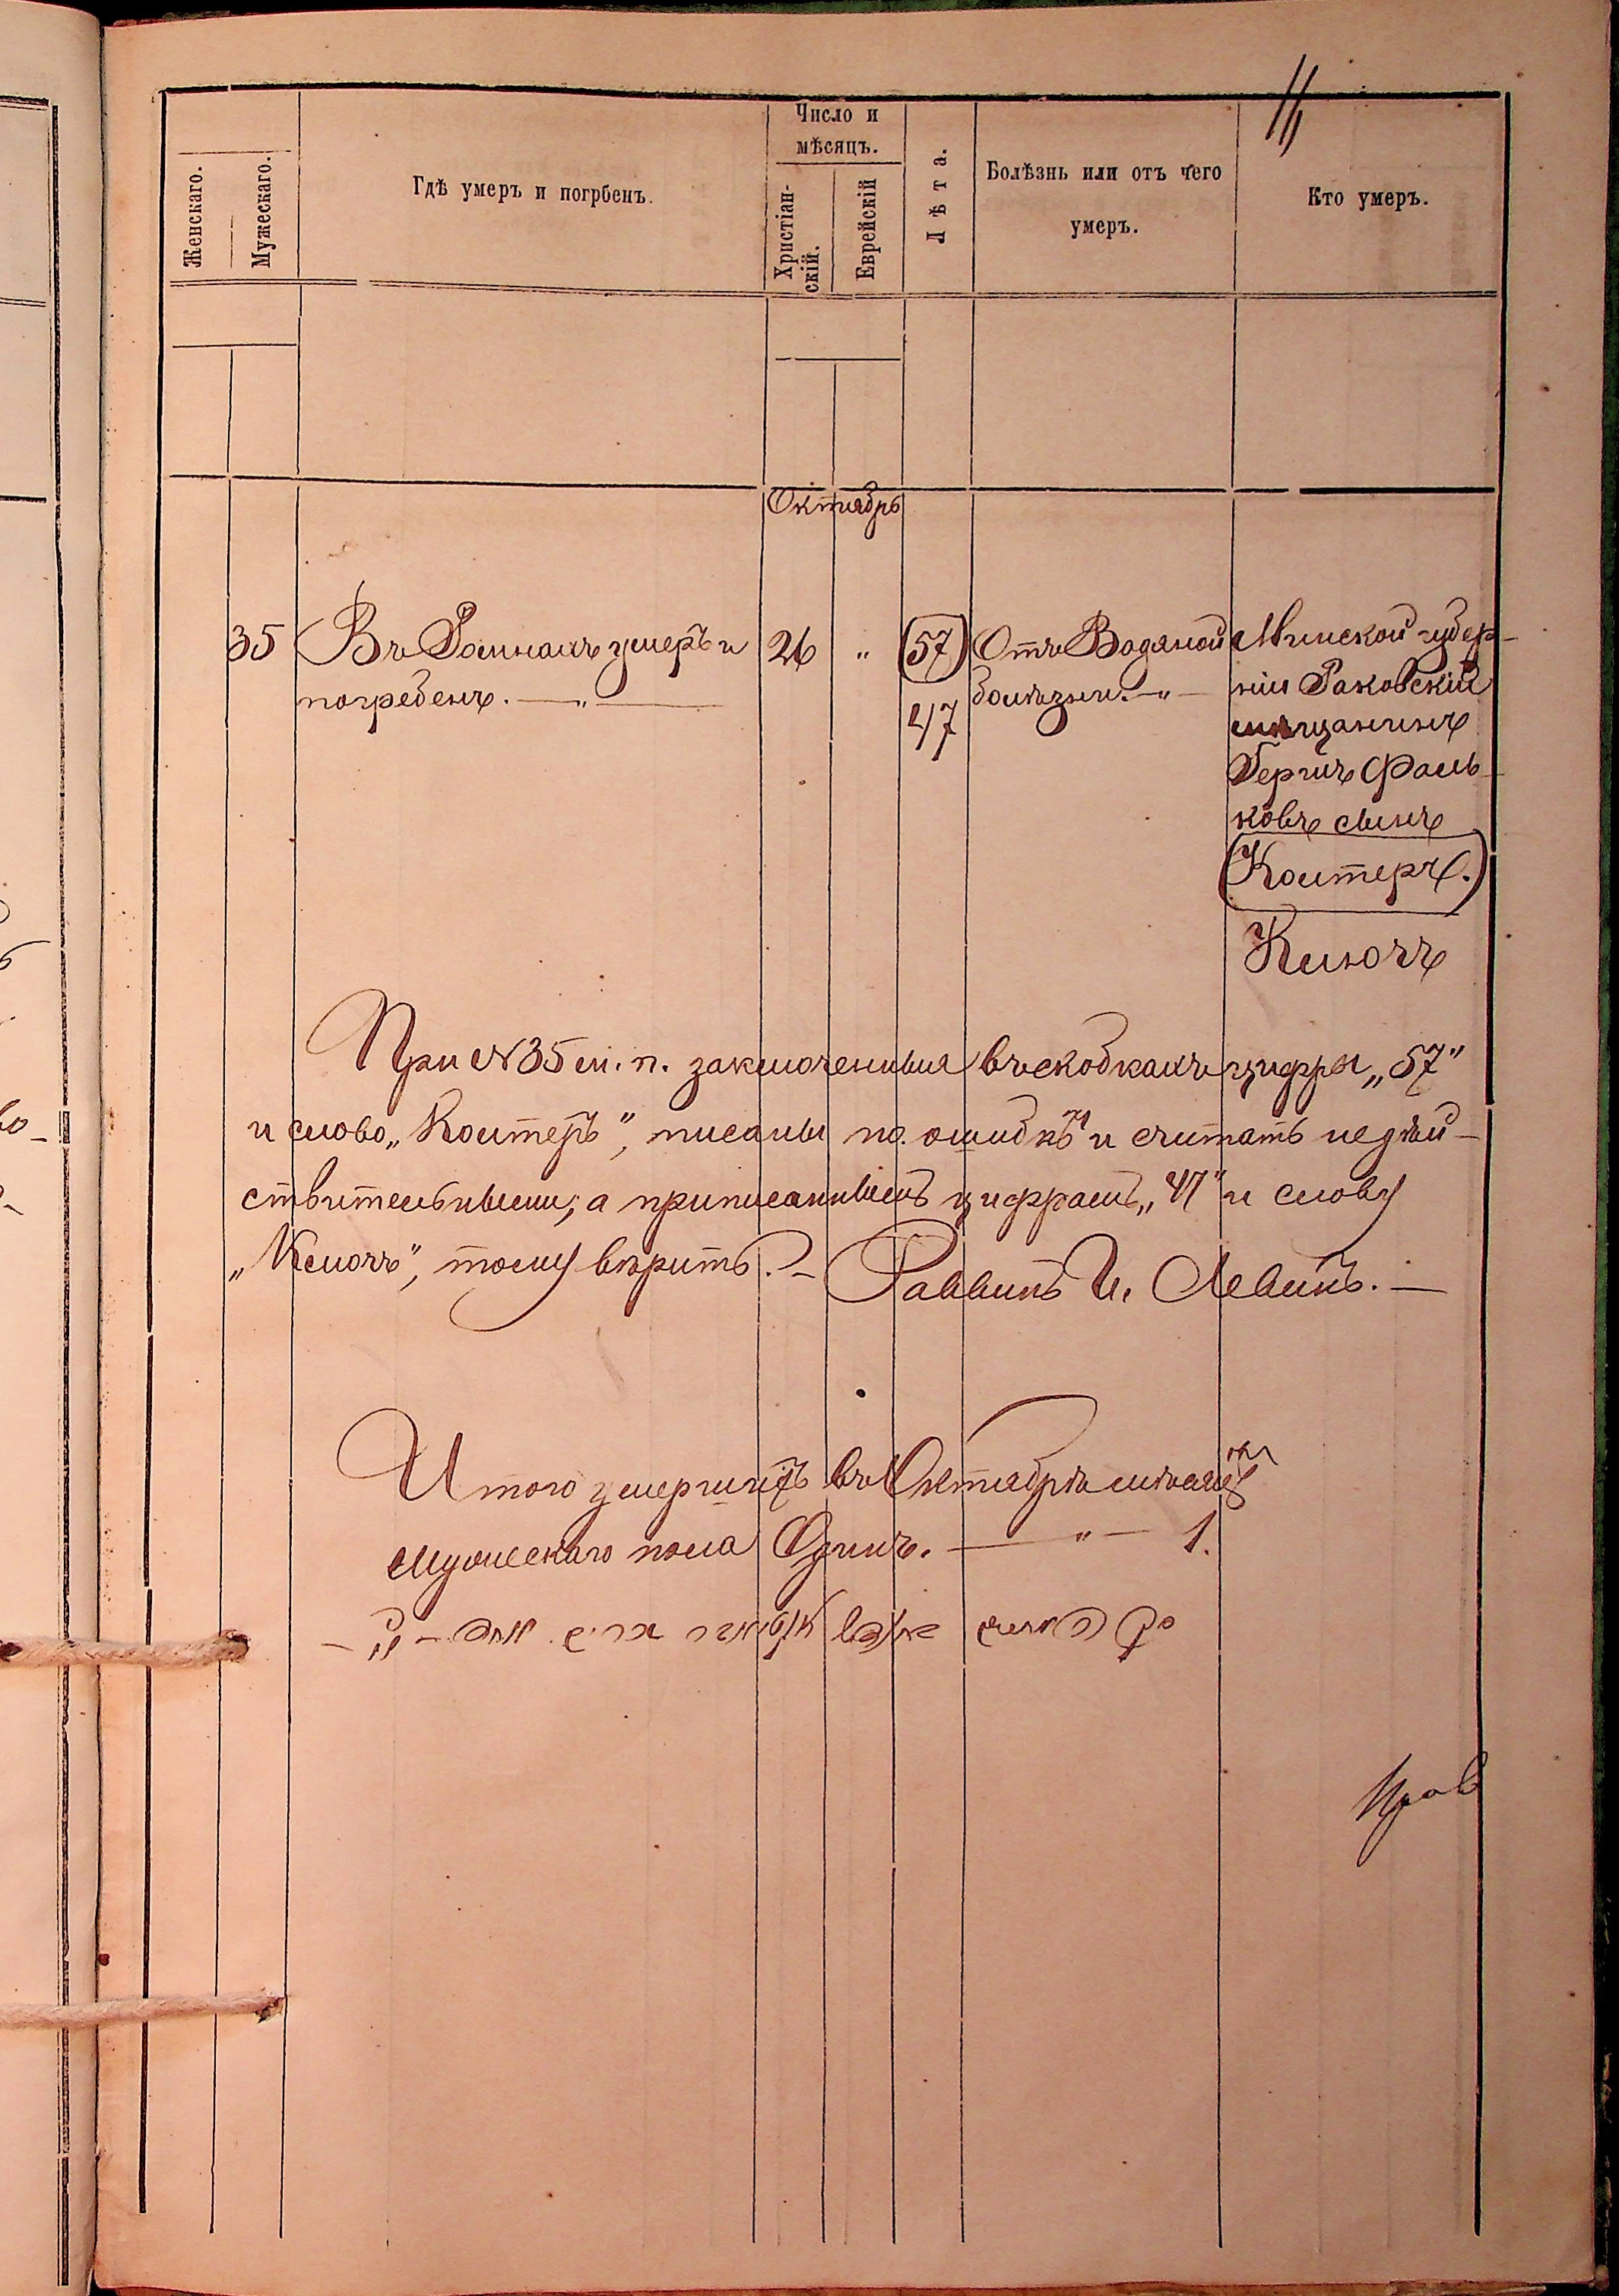 Женскаго.
Мужескаго.
Гдѣ умеръ и погрбенъ.
Число и
мѣсяцъ.
Христіан-
скій.
Еврейскій
Лѣта.
Болѣзнь или отъ чего
умеръ.
Кто умеръ.
Октябрь
35
Въ Ромнахъ умеръ и
погребенъ. — " —
26
"
(57)
47
Отъ Водяной
болѣзни. — " —
Минской губер-
ніи Раковскій
мѣщанинъ
Гершъ Фаль-
ковъ сынъ
(Колтеръ.)
Ключъ
При № 35 м. п. заключенныя въ скобкахъ цифры „57"
и слово „Колтеръ", писаны по ошибкѣ и считать недѣй-
ствительными; а приписаннымъ цифрамъ „47" и слову
„Ключъ", тому вѣрить. — Раввинъ И. Левинъ. —
Итого умершихъ въ Октябрѣ мѣсяцѣ
мужескаго пола Одинъ. — " — 1.